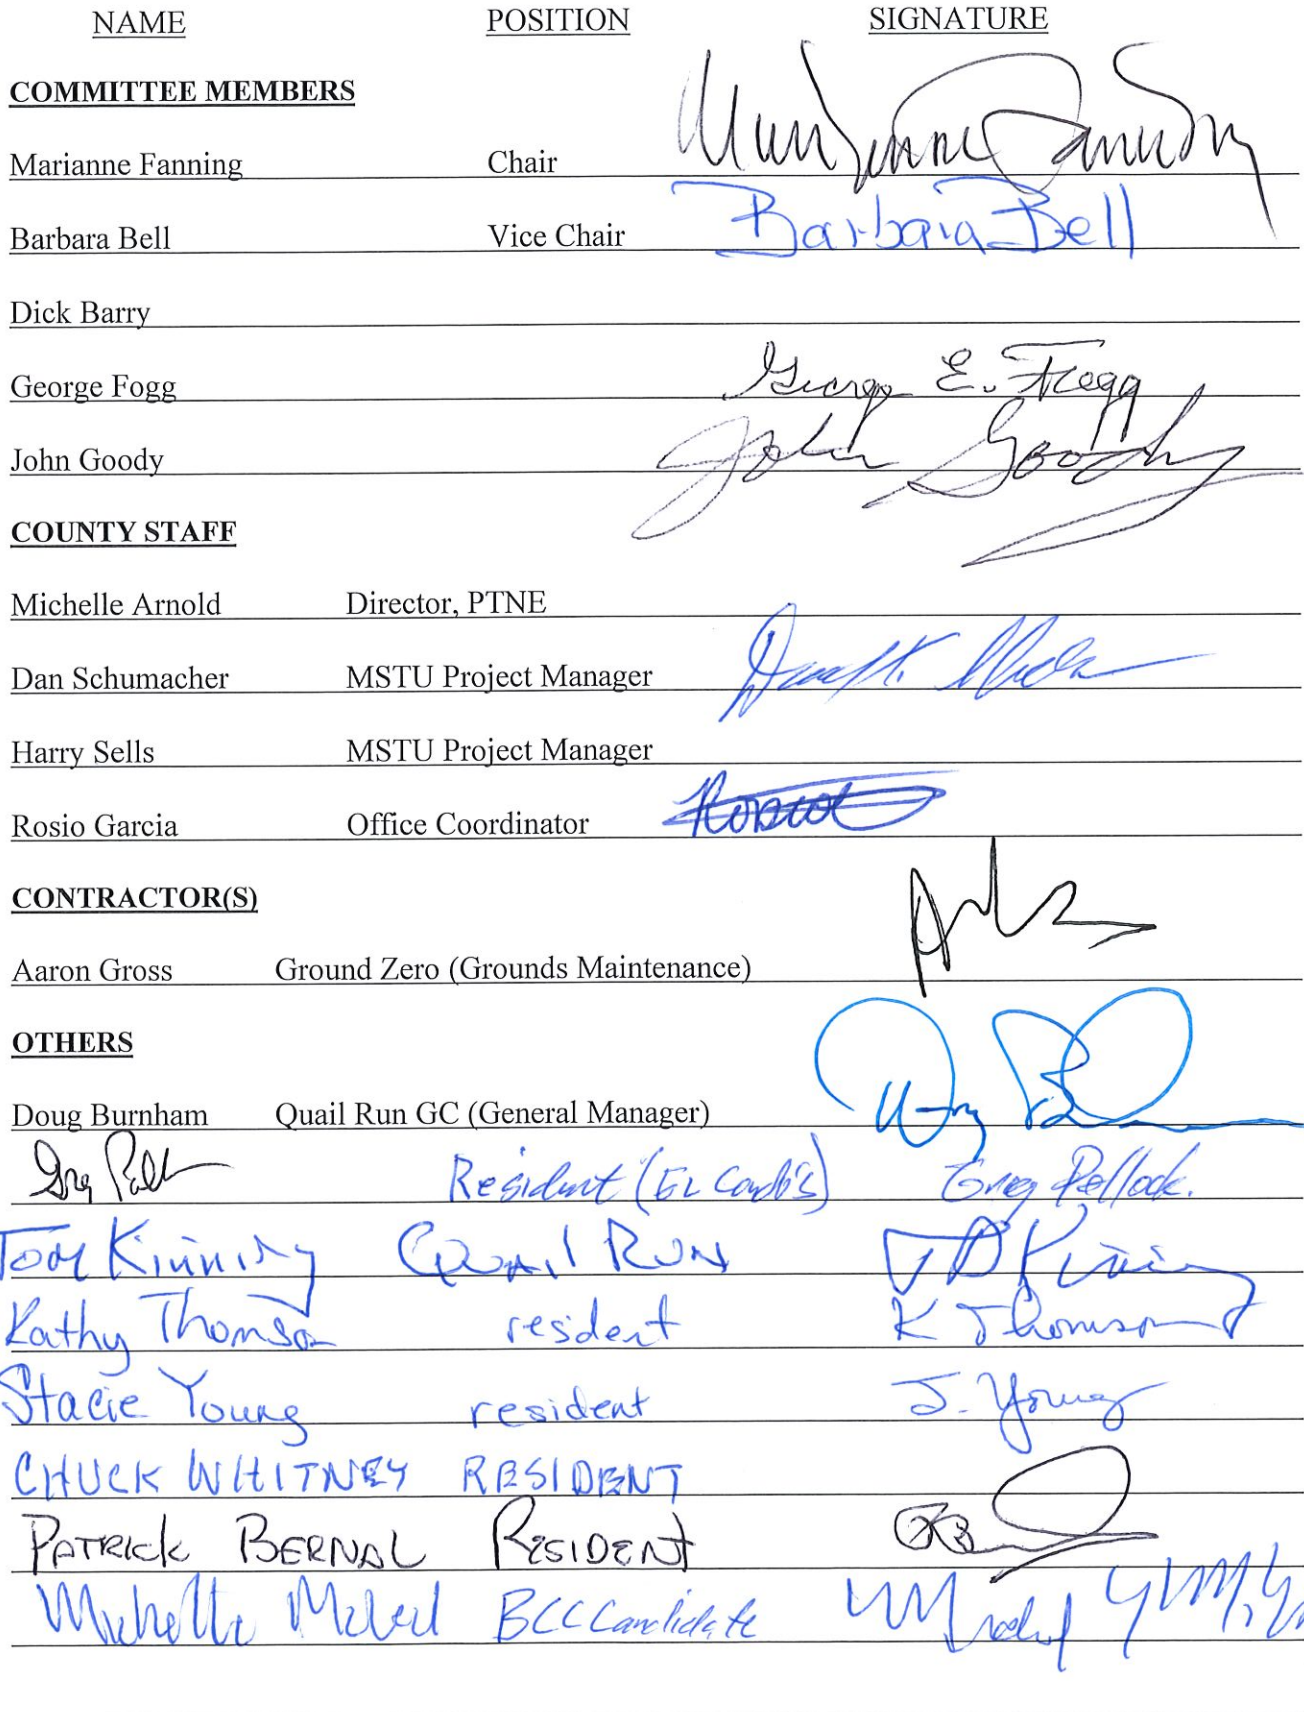 NAME POSITION SIGNATURE
COMMITTEE MEMBERS
Marianne Fanning Chair Marianne Fanning
Barbara Bell Vice Chair Barbara Bell
Dick Barry
George Fogg George E. Fogg
John Goody John Goody
COUNTY STAFF
Michelle Arnold Director, PTNE
Dan Schumacher MSTU Project Manager
Harry Sells MSTU Project Manager
Rosio Garcia Office Coordinator
CONTRACTOR(S)
Aaron Gross Ground Zero (Grounds Maintenance)
OTHERS
Doug Burnham Quail Run GC (General Manager)
Resident Greg Pollock.
Kinnisy Quail Run
Kathy Thomson resident K Thomson
Stacie Young resident S. Young
CHUCK WHITNEY RESIDENT
PATRICK BERNAL RESIDENT
Michelle BCC Candidate